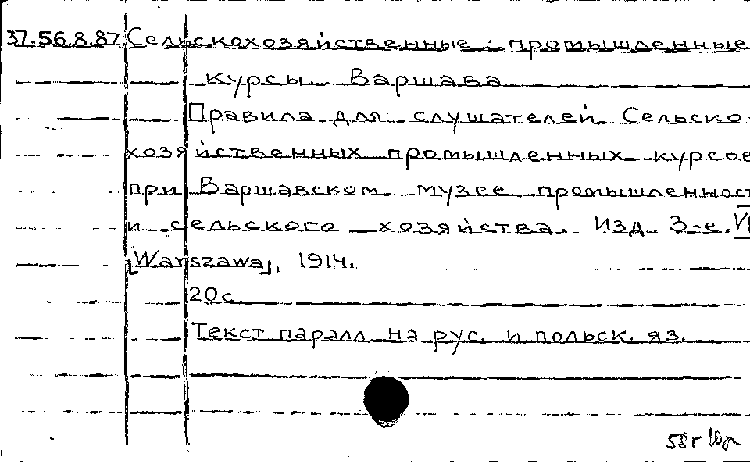 37.56.8.87 Сельскохозяйственные промышленные
курсы. Варшава
Правила для слушателей Сельско-
хозяйственных промышленных курсов
при Варшавском музее промышленност
и сельского хозяйства. Изд. 3-е.
[Warszawa], 1914.
20 с.
Текст паралл. на рус. и польск. яз.
58г